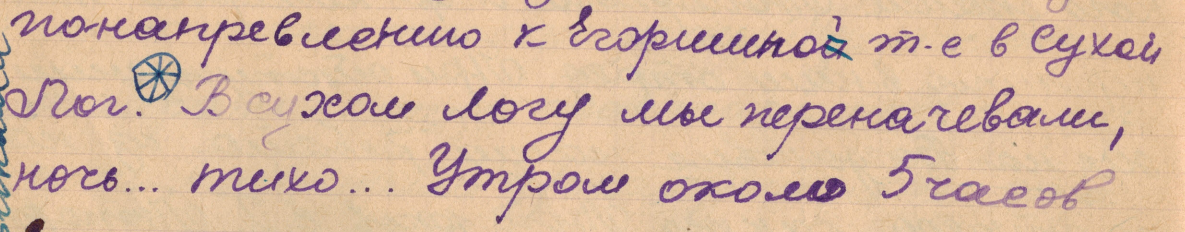 понапревлению к Егоршиной т-е в Сухой
Лог. В сухом логу мы переначевали,
ночь... тихо... Утром около 5 часов